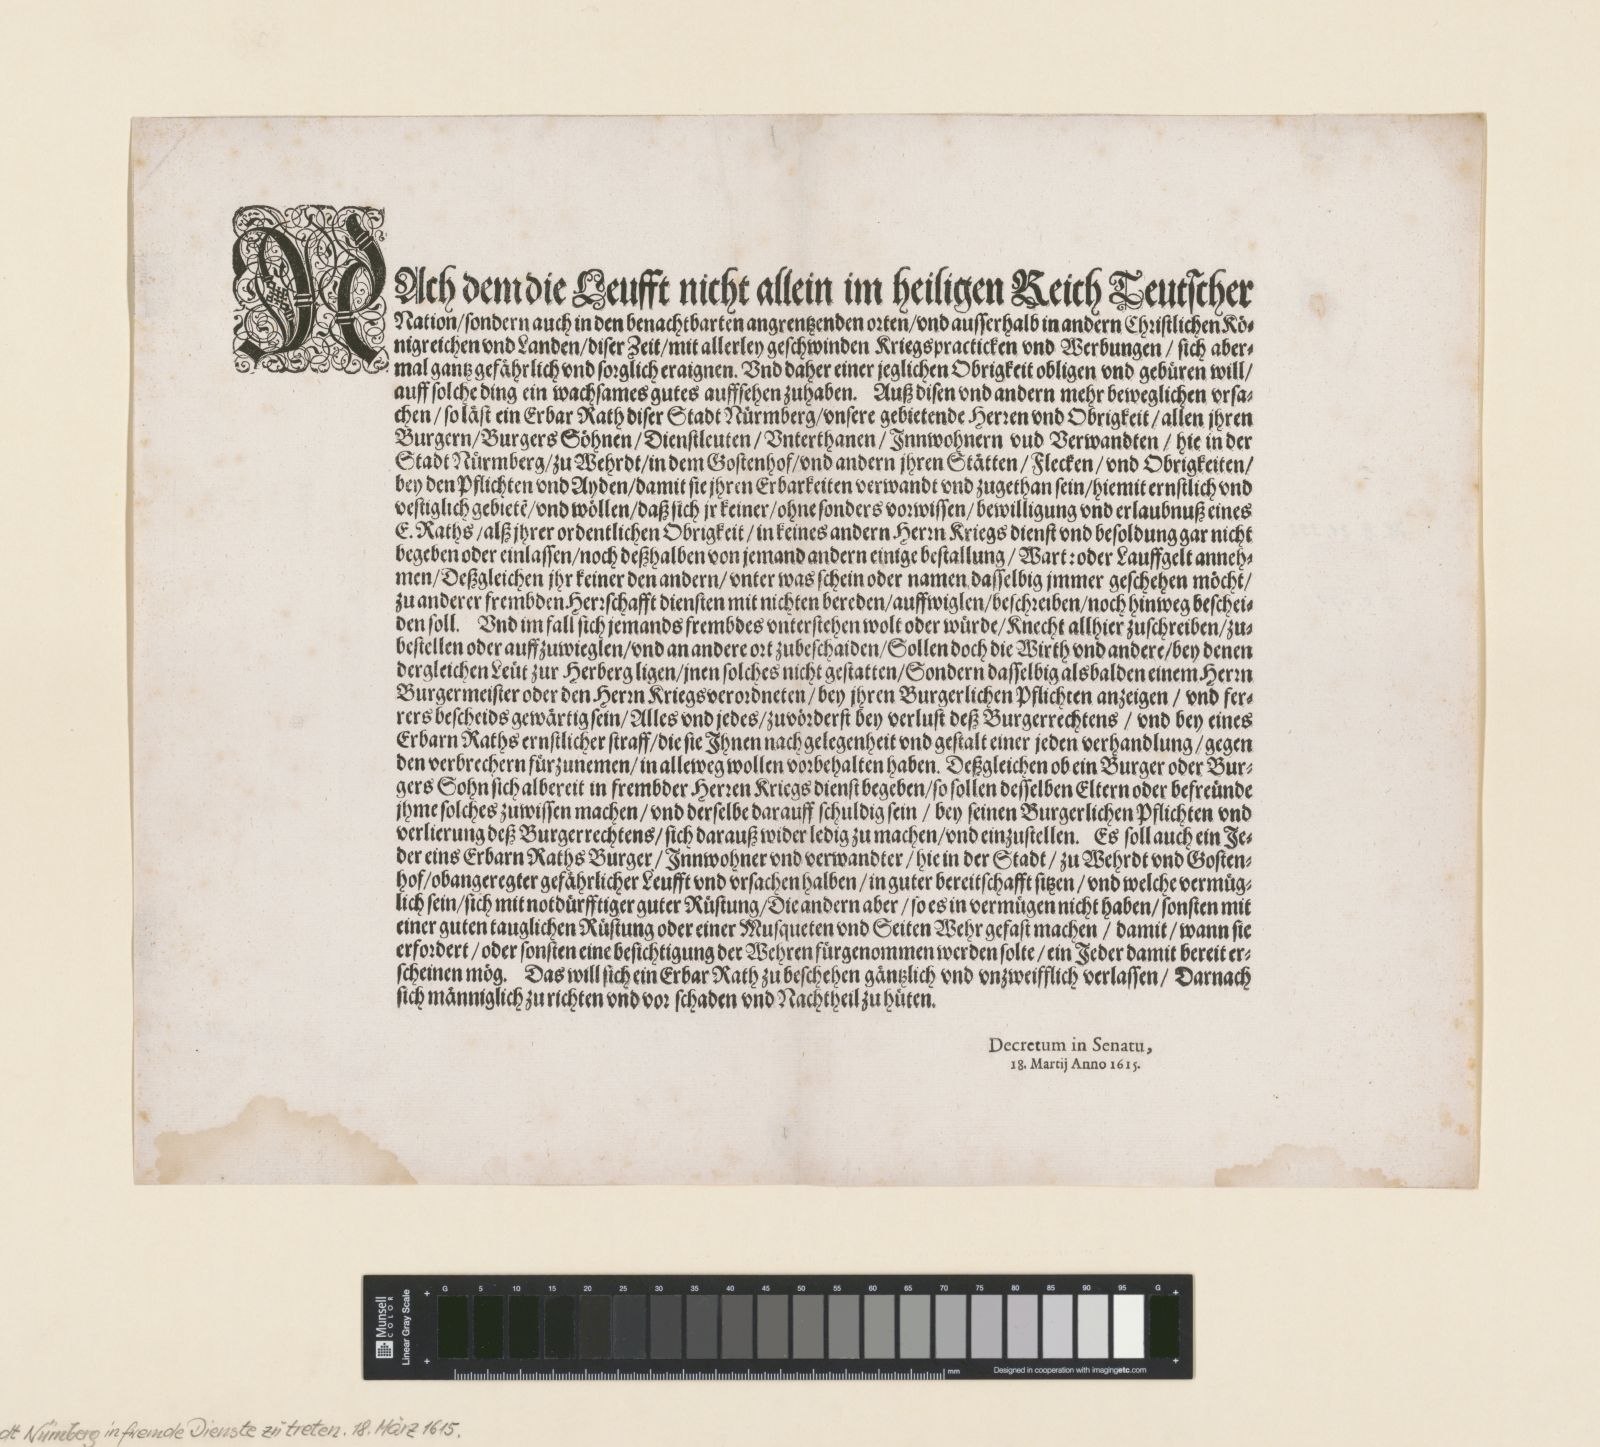 NAch dem die Leufft nicht allein im heiligen Reich Teutscher
Nation/sondern auch in den benachtbarten angrentzenden orten/vnd ausserhalb in andern Christlichen Kö-
nigreichen vnd Landen/diser Zeit/mit allerley geschwinden Kriegspracticken vnd Werbungen/sich aber-
mal gantz gefährlich vnd sorglich eraignen. Vnd daher einer jeglichen Obrigkeit obligen vnd gebüren will/
auff solche ding ein wachsames gutes auffsehen zuhaben. Auß disen vnd andern mehr beweglichen vrsa-
chen/so läst ein Erbar Rath diser Stadt Nürmberg/vnsere gebietende Herren vnd Obrigkeit/allen jhren
Burgern/Burgers Söhnen/Dienstleuten/Vnterthanen/Innwohnern vud Verwandten/hie in der
Stadt Nürmberg/zu Wehrdt/in dem Gostenhof/vnd andern jhren Stätten/Flecken/vnd Obrigkeiten/
bey den Pflichten vnd Ayden/damit sie jhren Erbarkeiten verwandt vnd zugethan sein/hiemit ernstlich vnd
vestiglich gebietē/vnd wöllen/daß sich jr keiner/ohne sonders vorwissen/bewilligung vnd erlaubnuß eines
E. Raths/alß jhrer ordentlichen Obrigkeit/in keines andern Herrn Kriegs dienst vnd besoldung gar nicht
begeben oder einlassen/noch deßhalben von jemand andern einige bestallung/Wart: oder Lauffgelt anneh-
men/Deßgleichen jhr keiner den andern/vnter was schein oder namen dasselbig jmmer geschehen möcht/
zu anderer frembden Herrschafft diensten mit nichten bereden/auffwiglen/beschreiben/noch hinweg beschei-
den soll. Vnd im fall sich jemands frembdes vnterstehen wolt oder würde/Knecht allhier zuschreiben/zu-
bestellen oder auffzuwieglen/vnd an andere ort zubeschaiden/Sollen doch die Wirth vnd andere/bey denen
dergleichen Leüt zur Herberg ligen/jnen solches nicht gestatten/Sondern dasselbig alsbalden einem Herrn
Burgermeister oder den Herrn Kriegsverordneten/bey jhren Burgerlichen Pflichten anzeigen/vnd fer-
rers bescheids gewärtig sein/Alles vnd jedes/zuvörderst bey verlust deß Burgerrechtens/vnd bey eines
Erbarn Raths ernstlicher straff/die sie Ihnen nach gelegenheit vnd gestalt einer jeden verhandlung/gegen
den verbrechern fürzunemen/in alleweg wollen vorbehalten haben. Deßgleichen ob ein Burger oder Bur-
gers Sohn sich albereit in frembder Herren Kriegs dienst begeben/so sollen desselben Eltern oder befreünde
jhme solches zuwissen machen/vnd derselbe darauff schuldig sein/bey seinen Burgerlichen Pflichten vnd
verlierung deß Burgerrechtens/sich darauß wider ledig zu machen/vnd einzustellen. Es soll auch ein Je-
der eins Erbarn Raths Burger/Innwohner vnd verwandter/hie in der Stadt/zu Wehrdt vnd Gosten-
hof/obangeregter gefährlicher Leufft vnd vrsachen halben/in guter bereitschafft sitzen/vnd welche vermüg-
lich sein/sich mit notdürfftiger guter Rüstung/Die andern aber/so es in vermügen nicht haben/sonsten mit
einer guten tauglichen Rüstung oder einer Musqueten vnd Seiten Wehr gefast machen/damit/wann sie
erfordert/oder sonsten eine besichtigung der Wehren fürgenommen werden solte/ein Jeder damit bereit er-
scheinen mög. Das will sich ein Erbar Rath zu beschehen gäntzlich vnd vnzweifflich verlassen/Darnach
sich männiglich zu richten vnd vor schaden vnd Nachtheil zu hüten.
Decretum in Senatu,
18. Martij Anno 1615.
Munsell
COLOR
Linear Gray Scale
G 5 10 15 20 25 30 35 40 45 50 55 60 65 70 75 80 85 90 95 G
mm
Designed in cooperation with imagingetc.com
dt Nürnberg in fremde Dienste zu treten. 18. März 1615.